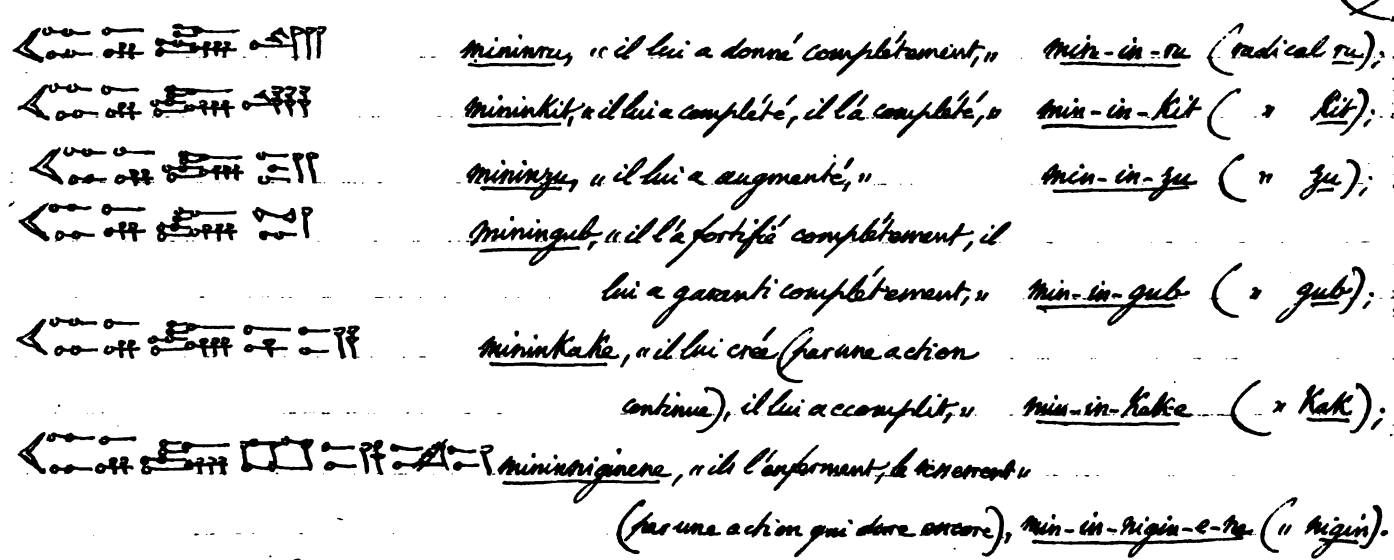 mininru, « il lui a donné complétement, » min-in-ru (radical ru);
mininkit, « il lui a complété, il l'a complété, » min-in-kit ( » kit);
mininzu, « il lui a augmenté, » min-in-zu ( » zu);
miningub, « il l'a fortifié complétement, il
lui a garanti complétement, » min-in-gub ( » gub);
mininkake, « il lui crée (par une action
continue), il lui accomplit, » min-in-kak-e ( » kak);
mininniginene, « ils l'enferment, le resserrent »
(par une action qui dure encore), min-in-nigin-e-ne ( » nigin).